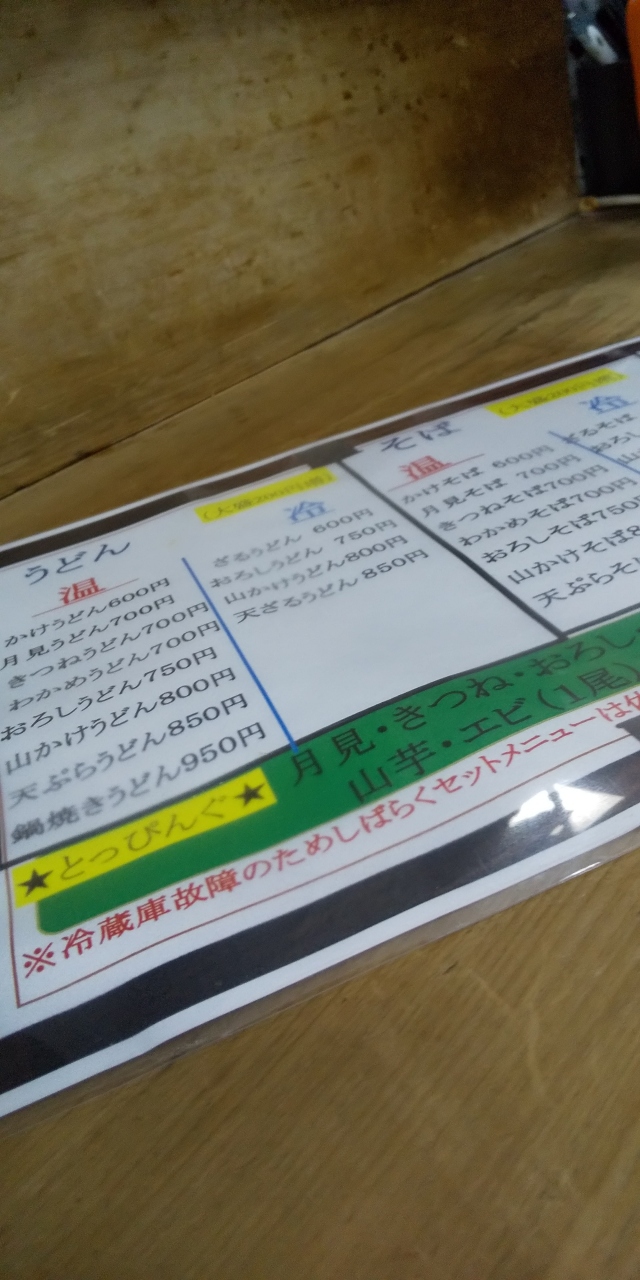 うどん
温
かけうどん600円
月見うどん700円
きつねうどん700円
わかめうどん700円
おろしうどん750円
山かけうどん800円
天ぷらうどん850円
鍋焼きうどん950円
(大盛200円増)
冷
ざるうどん 600円
おろしうどん 750円
山かけうどん800円
天ざるうどん 850円
そば
温
かけそば 600円
月見そば 700円
きつねそば700円
わかめそば700円
おろしそば750
山かけそば8
天ぷらそ
(大盛200円増)
冷
ざるそば
★とっぴんぐ★
月見・きつね・おろし
山芋・エビ(1尾)
※冷蔵庫故障のためしばらくセットメニューは